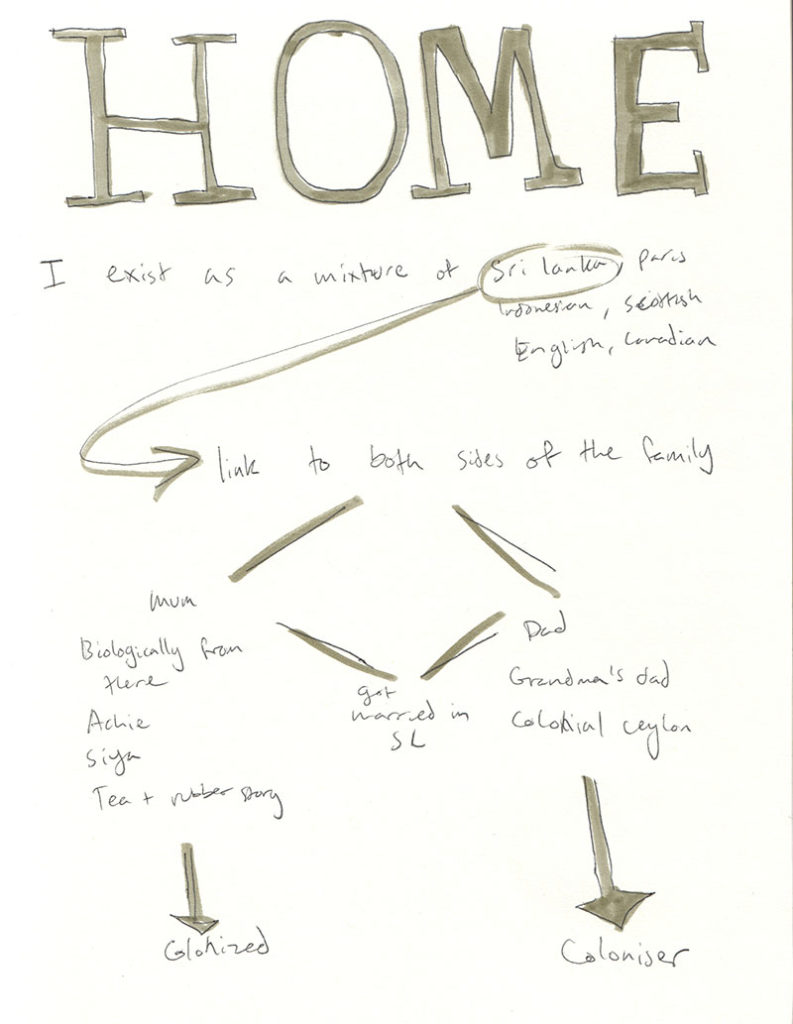 HOME
I exist as a mixture of Sri lanka, Paris
Indonesian, Scottish
English, Canadian
link to both sides of the family
Mum
Biologically from
there
Achie
Siya
Tea + rubber story
got
married in
SL
Dad
Grandma's dad
Colonial ceylon
Colonized
Coloniser